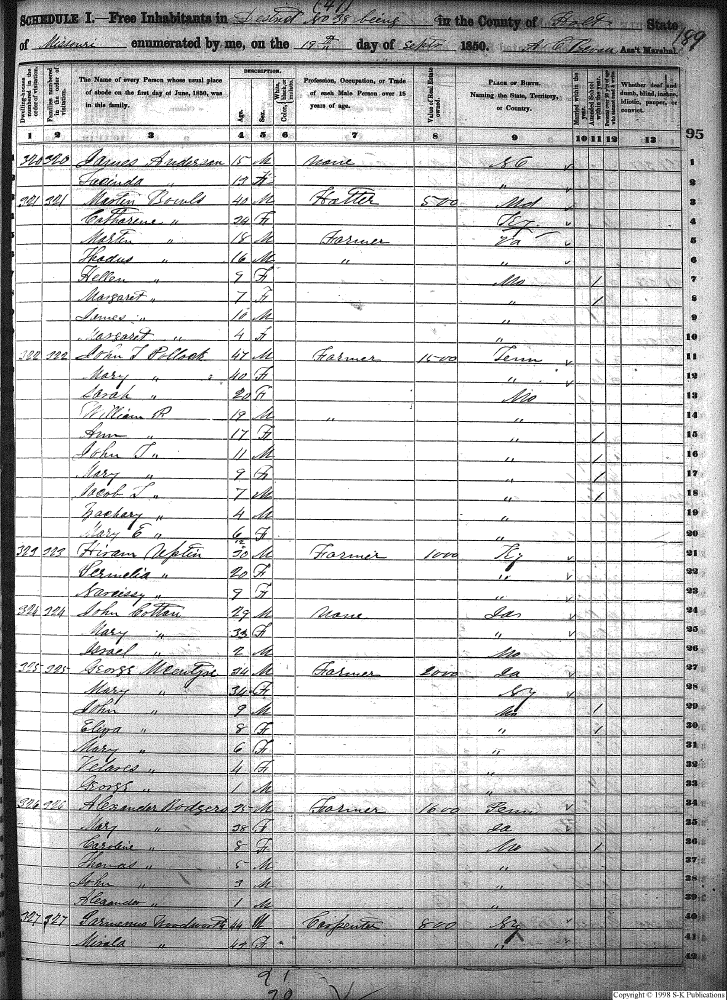 (41)
SCHEDULE I.—Free Inhabitants in District No 38 being in the County of Holt State 189
of Missouri enumerated by me, on the 19th day of Septr 1850. Ass't Marshal.
Dwelling-houses numbered in the order of visitation.
Families numbered in the order of visitation.
The Name of every Person whose usual place of abode on the first day of June, 1850, was in this family.
DESCRIPTION.
Age.
Sex.
White, black, or mulatto.
Color.
Profession, Occupation, or Trade of each Male Person over 15 years of age.
Value of Real Estate owned.
PLACE OF BIRTH. Naming the State, Territory, or Country.
Married within the year.
Attended School within the year.
Whether deaf and dumb, blind, insane, idiotic, pauper, or convict.
1 2 3 4 5 6 7 8 9 10 11 12 13
95
320 320 James Anderson 15 M None 1
Lucinda " 13 F " 2
321 321 Martin Bowls 40 M Hatter 500 Md 3
Catharene " 24 F Ky 4
Martin " 18 M Farmer Va 5
Thadus " 16 M " " 6
Hellen " 9 F Mo 1 7
Margaret " 7 F " 1 8
James " 10 M " 9
Margaret " 4 F " 10
322 322 John T Pollock 47 M Farmer 1500 Tenn 11
Mary " 40 F " 12
Sarah " 20 F Mo 13
William R 19 M " " 14
Ann " 17 F " 1 15
John T " 11 M " 1 16
Mary " 9 F " 1 17
Jacob L " 7 M " 1 18
Zachary " 4 M " 19
Mary E " 6/12 F " 20
323 323 Hiram 30 M Farmer 1000 Ky 21
Permelia " 20 F " 22
Narcissy " 9 F " 23
324 324 John Cotton 29 M None 24
Mary " 33 F " 25
Israel " 2 M Mo 26
325 325 George McIntyre 34 M Farmer 2000 27
Mary " 34 F Ky 28
John " 9 M Mo 1 29
Eliza " 8 F " 1 30
Mary " 6 F " 31
" 4 F " 32
George " 1 M " 33
326 326 Alexander Rodgers 35 M Farmer 1600 Tenn 34
Mary " 28 F 35
Caroline " 8 F Mo 1 36
Thomas " 5 M " 37
John " 3 M " 38
Alexander " 1 M " 39
327 327 Woodworth 49 M Carpenter 800 Ny 40
" 44 F " 41
42
Copyright © 1998 S-K Publications